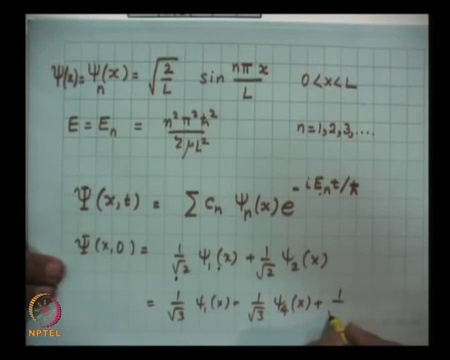 ψ(x) = ψₙ(x) = √(2/L) sin nπx/L 0 < x < L
E = Eₙ = n²π²ħ²/2μL² n = 1, 2, 3, ....
Ψ(x, t) = Σ cₙ ψₙ(x) e^(-iEₙt/ħ)
Ψ(x, 0) = 1/√2 ψ₁(x) + 1/√2 ψ₂(x)
= 1/√3 ψ₁(x) + 1/√3 ψ₄(x) + 1
NPTEL